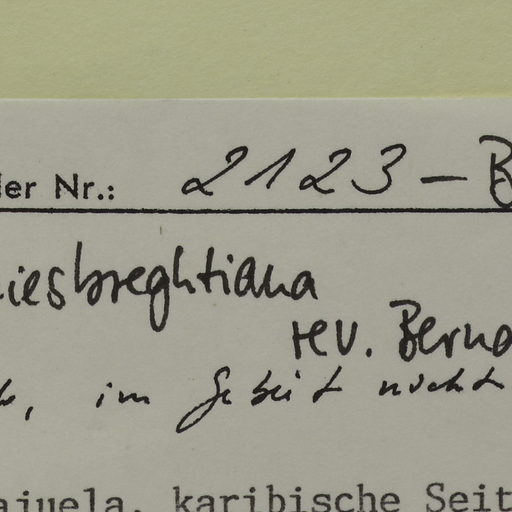 der Nr.: 2123-B
iesbreghtiana
rev. Berno
b, im Gebiet nicht
ajuela, karibische Seit